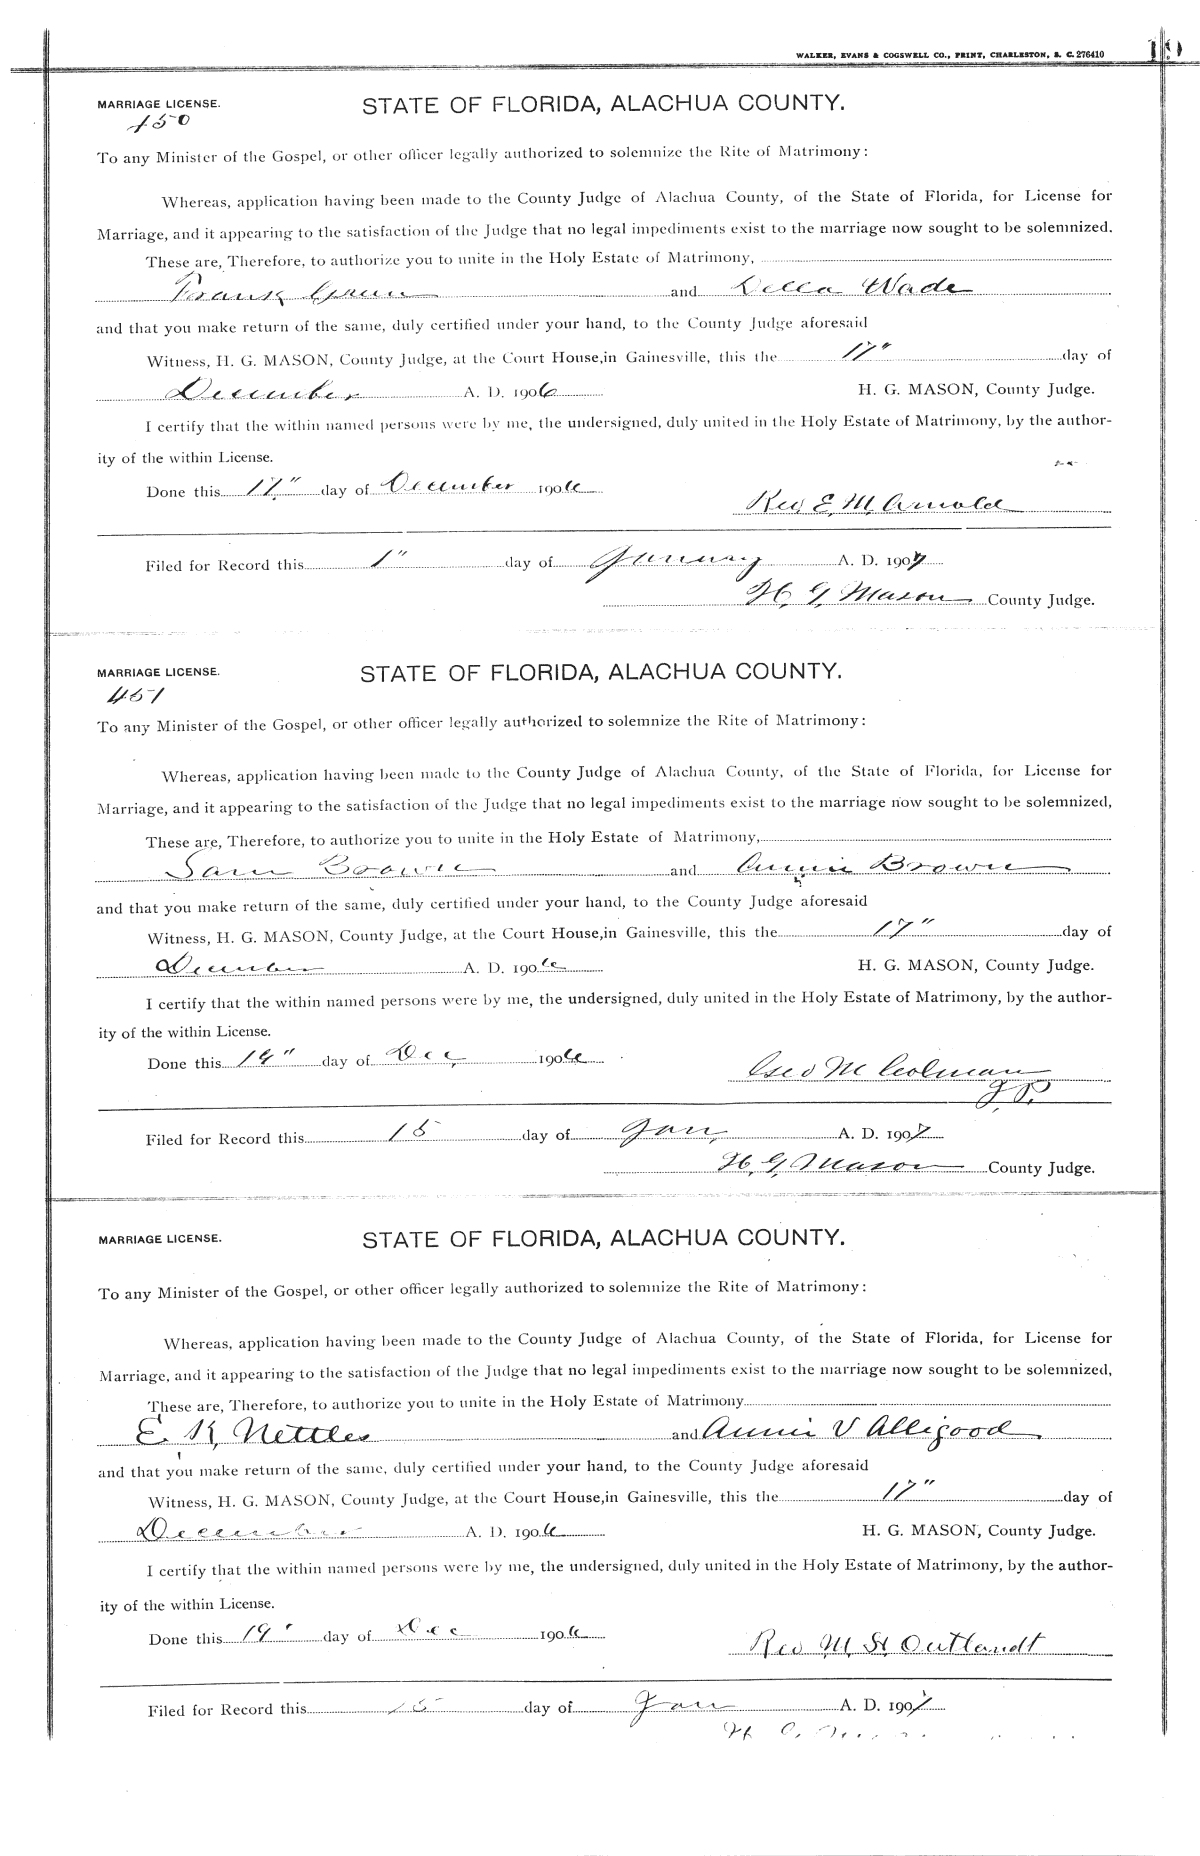 WALKER, EVANS & COGSWELL CO., PRINT, CHARLESTON, S. C. 276410
MARRIAGE LICENSE. STATE OF FLORIDA, ALACHUA COUNTY.
450
To any Minister of the Gospel, or other officer legally authorized to solemnize the Rite of Matrimony:
Whereas, application having been made to the County Judge of Alachua County, of the State of Florida, for License for
Marriage, and it appearing to the satisfaction of the Judge that no legal impediments exist to the marriage now sought to be solemnized.
These are, Therefore, to authorize you to unite in the Holy Estate of Matrimony,
Frank Green and Della Wade
and that you make return of the same, duly certified under your hand, to the County Judge aforesaid
Witness, H. G. MASON, County Judge, at the Court House, in Gainesville, this the 17" day of
December A. D. 1906 H. G. MASON, County Judge.
I certify that the within named persons were by me, the undersigned, duly united in the Holy Estate of Matrimony, by the author-
ity of the within License.
Done this 17" day of December 1906
Rev E. M. Arnold
Filed for Record this 1" day of January A. D. 1907
H. G. Mason County Judge.
MARRIAGE LICENSE. STATE OF FLORIDA, ALACHUA COUNTY.
451
To any Minister of the Gospel, or other officer legally authorized to solemnize the Rite of Matrimony:
Whereas, application having been made to the County Judge of Alachua County, of the State of Florida, for License for
Marriage, and it appearing to the satisfaction of the Judge that no legal impediments exist to the marriage now sought to be solemnized,
These are, Therefore, to authorize you to unite in the Holy Estate of Matrimony,
Sam Brown and Annie Brown
and that you make return of the same, duly certified under your hand, to the County Judge aforesaid
Witness, H. G. MASON, County Judge, at the Court House, in Gainesville, this the 17" day of
December A. D. 1906 H. G. MASON, County Judge.
I certify that the within named persons were by me, the undersigned, duly united in the Holy Estate of Matrimony, by the author-
ity of the within License.
Done this 19" day of Dec, 1906
Geo M Colman
J. P.
Filed for Record this 15 day of Jan, A. D. 1907
H. G. Mason County Judge.
MARRIAGE LICENSE. STATE OF FLORIDA, ALACHUA COUNTY.
To any Minister of the Gospel, or other officer legally authorized to solemnize the Rite of Matrimony:
Whereas, application having been made to the County Judge of Alachua County, of the State of Florida, for License for
Marriage, and it appearing to the satisfaction of the Judge that no legal impediments exist to the marriage now sought to be solemnized,
These are, Therefore, to authorize you to unite in the Holy Estate of Matrimony
E. K. Nettles and Annie V Alligood
and that you make return of the same, duly certified under your hand, to the County Judge aforesaid
Witness, H. G. MASON, County Judge, at the Court House, in Gainesville, this the 17" day of
December A. D. 1906 H. G. MASON, County Judge.
I certify that the within named persons were by me, the undersigned, duly united in the Holy Estate of Matrimony, by the author-
ity of the within License.
Done this 19" day of Dec 1906
Rev M. H. Outlandt
Filed for Record this 15 day of Jan A. D. 1907